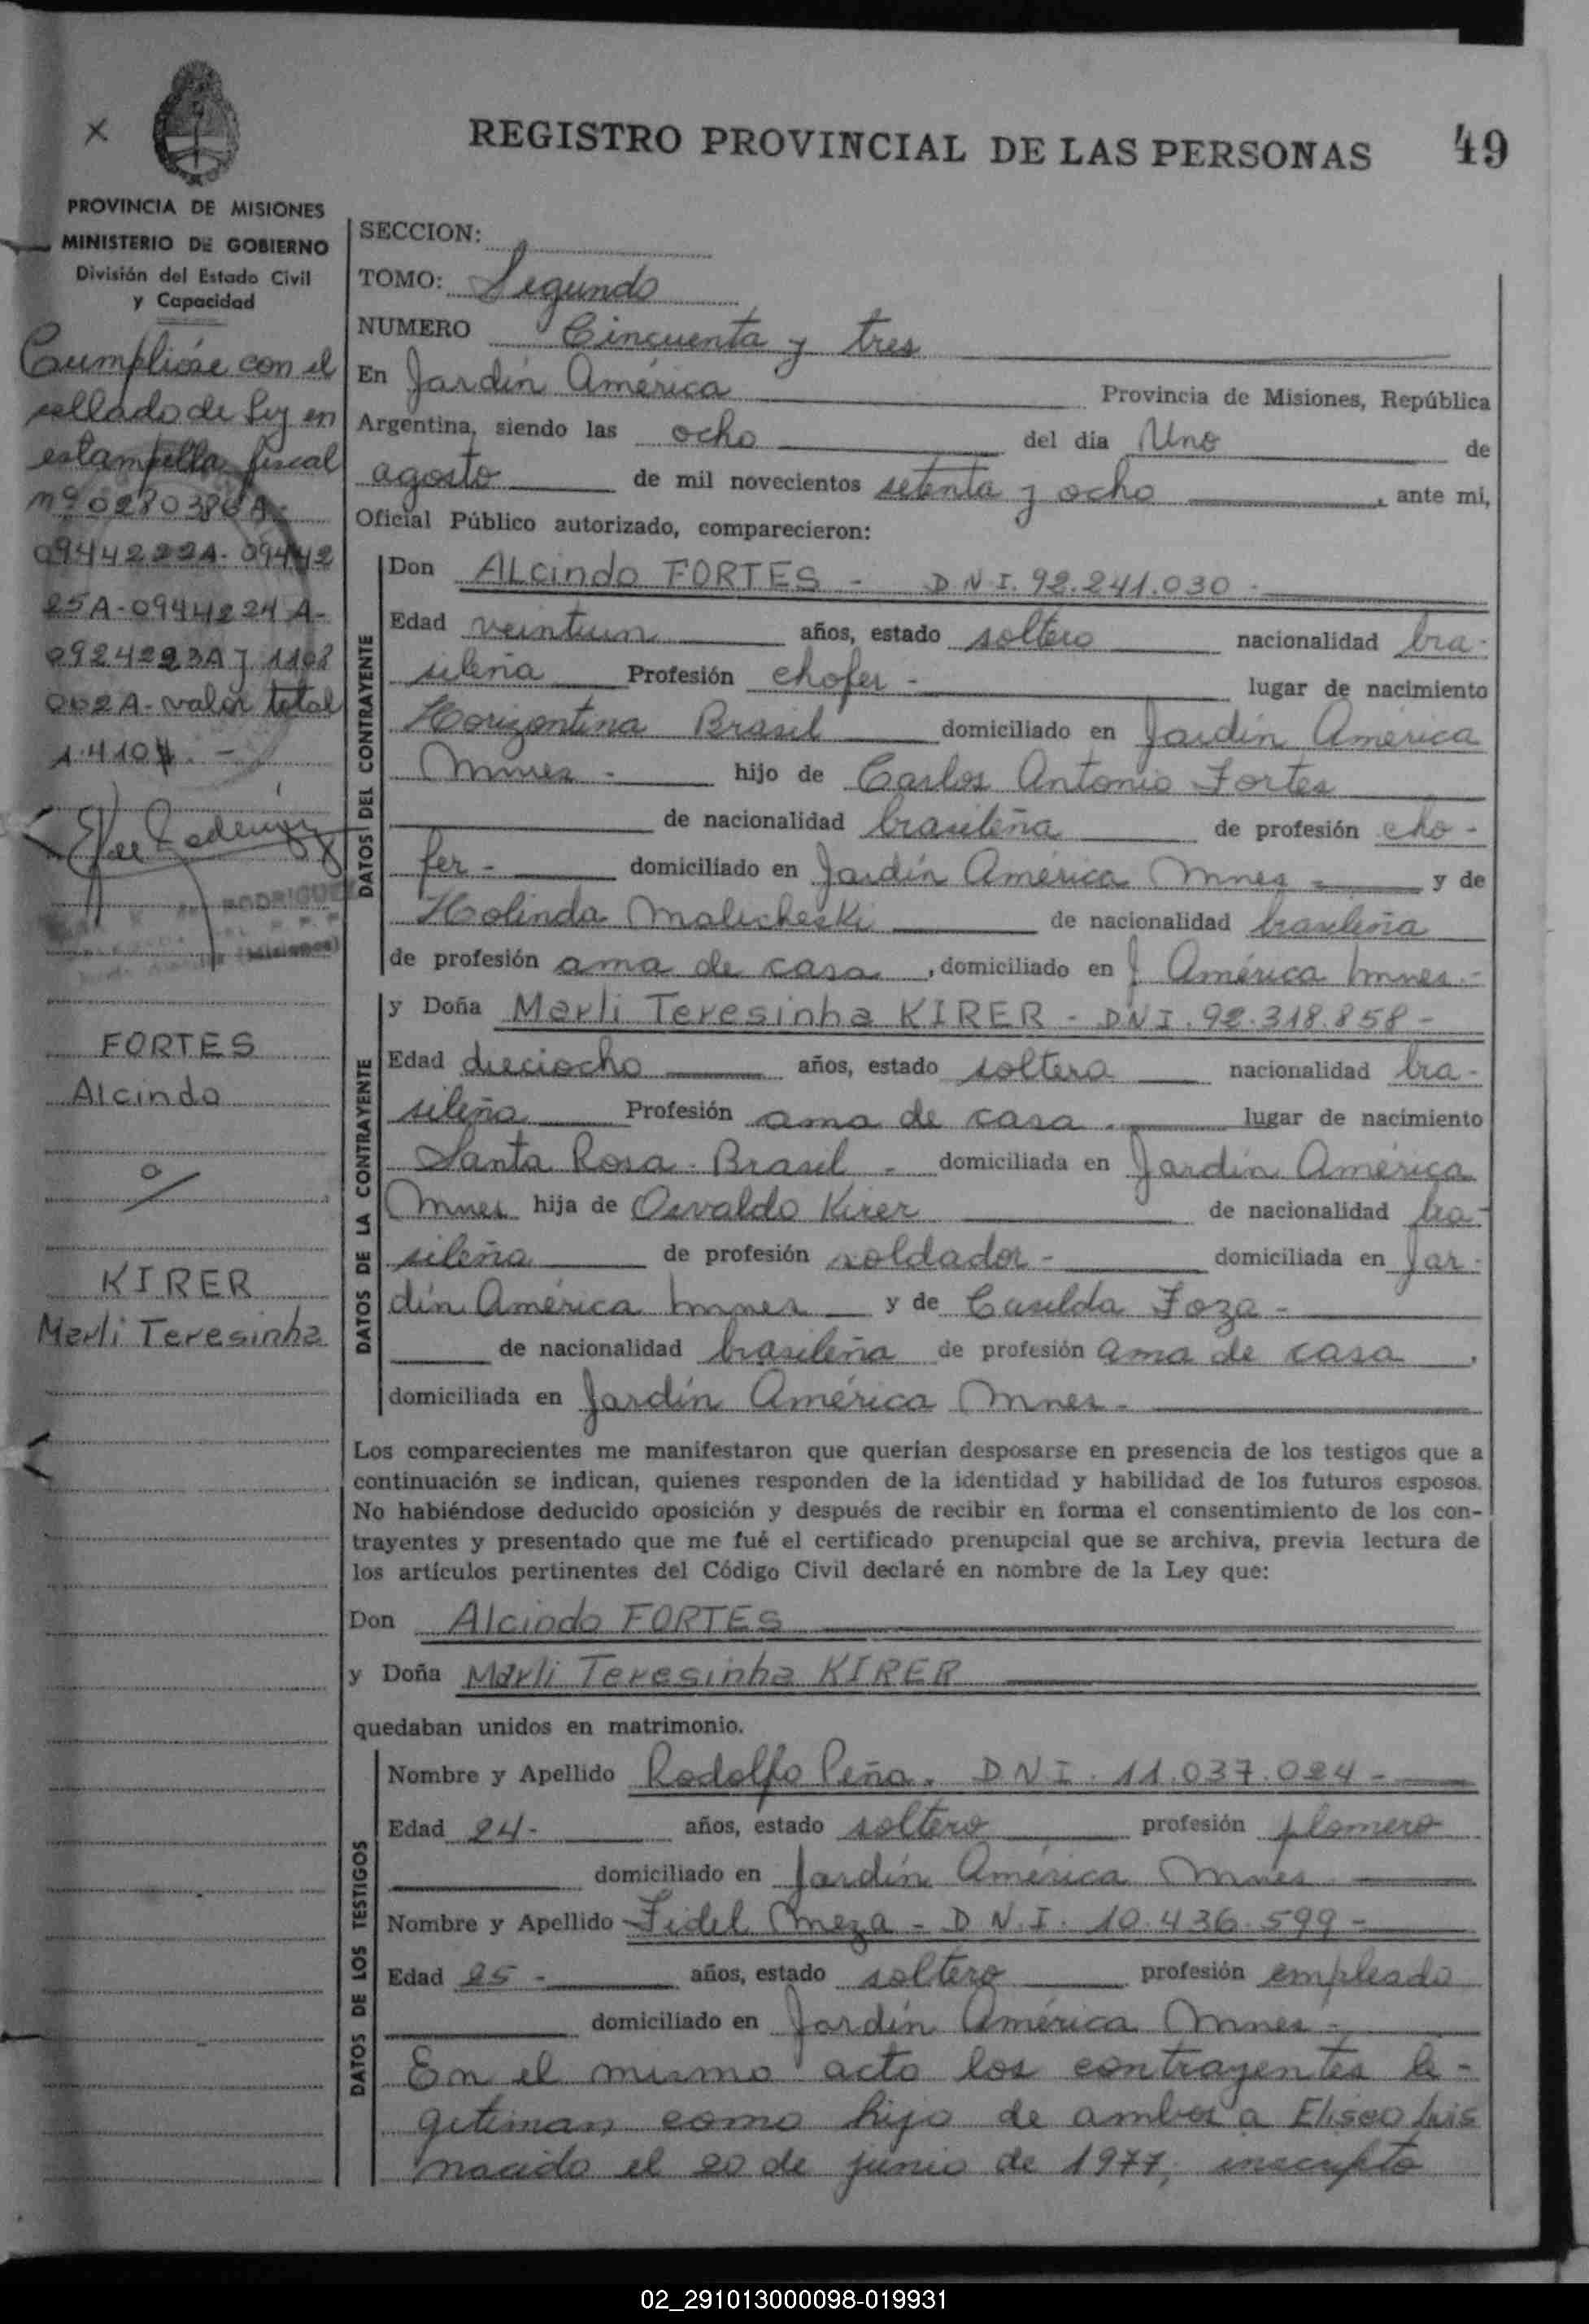 REGISTRO PROVINCIAL DE LAS PERSONAS 49
x
PROVINCIA DE MISIONES
MINISTERIO DE GOBIERNO
División del Estado Civil
y Capacidad
Cumplióse con el
sellado de Ley en
estampilla fiscal
nº 0280386A
0944222A-09442
25A-0944224A-
0924223A y 1108
002A-valor total
1.410$.-
RODRIGUE
(Misiones)
FORTES
Alcindo
KIRER
Marli Teresinha
SECCION:
TOMO: Segundo
NUMERO Cincuenta y tres
En Jardín América Provincia de Misiones, República
Argentina, siendo las ocho del día Uno de
agosto de mil novecientos setenta y ocho, ante mi,
Oficial Público autorizado, comparecieron:
DATOS DEL CONTRAYENTE
Don ALcindo FORTES - D.N.I. 92.241.030 -
Edad veintiun años, estado soltero nacionalidad bra-
sileña Profesión chofer - lugar de nacimiento
Horizontina Brasil domiciliado en Jardín América
Mnes - hijo de Carlos Antonio Fortes
de nacionalidad brasileña de profesión cho-
fer - domiciliado en Jardín América Mnes - y de
Holinda Malicheski de nacionalidad brasileña
de profesión ama de casa, domiciliado en J América Mnes.-
DATOS DE LA CONTRAYENTE
y Doña Marli Teresinha KIRER - DNI. 92.318.858 -
Edad dieciocho años, estado soltera nacionalidad bra-
sileña Profesión ama de casa. lugar de nacimiento
Santa Rosa - Brasil - domiciliada en Jardín América
Mnes hija de Osvaldo Kirer de nacionalidad bra-
sileña de profesión soldador - domiciliada en Jar-
dín América Mnes y de Casilda Foza -
de nacionalidad brasileña de profesión ama de casa,
domiciliada en Jardín América Mnes -
Los comparecientes me manifestaron que querían desposarse en presencia de los testigos que a
continuación se indican, quienes responden de la identidad y habilidad de los futuros esposos.
No habiéndose deducido oposición y después de recibir en forma el consentimiento de los con-
trayentes y presentado que me fué el certificado prenupcial que se archiva, previa lectura de
los artículos pertinentes del Código Civil declaré en nombre de la Ley que:
Don Alcindo FORTES
y Doña Marli Teresinha KIRER
quedaban unidos en matrimonio.
DATOS DE LOS TESTIGOS
Nombre y Apellido Rodolfo Peña. DNI. 11.037.024 -
Edad 24- años, estado soltero profesión plomero
domiciliado en Jardín América Mnes
Nombre y Apellido Fidel Meza - D.N.I. 10.436.599 -
Edad 25 - años, estado soltero profesión empleado
domiciliado en Jardín América Mnes -
En el mismo acto los contrayentes le-
gitiman como hijo de ambos a Eliseo Luis
nacido el 20 de junio de 1977, inscripto
02_291013000098-019931